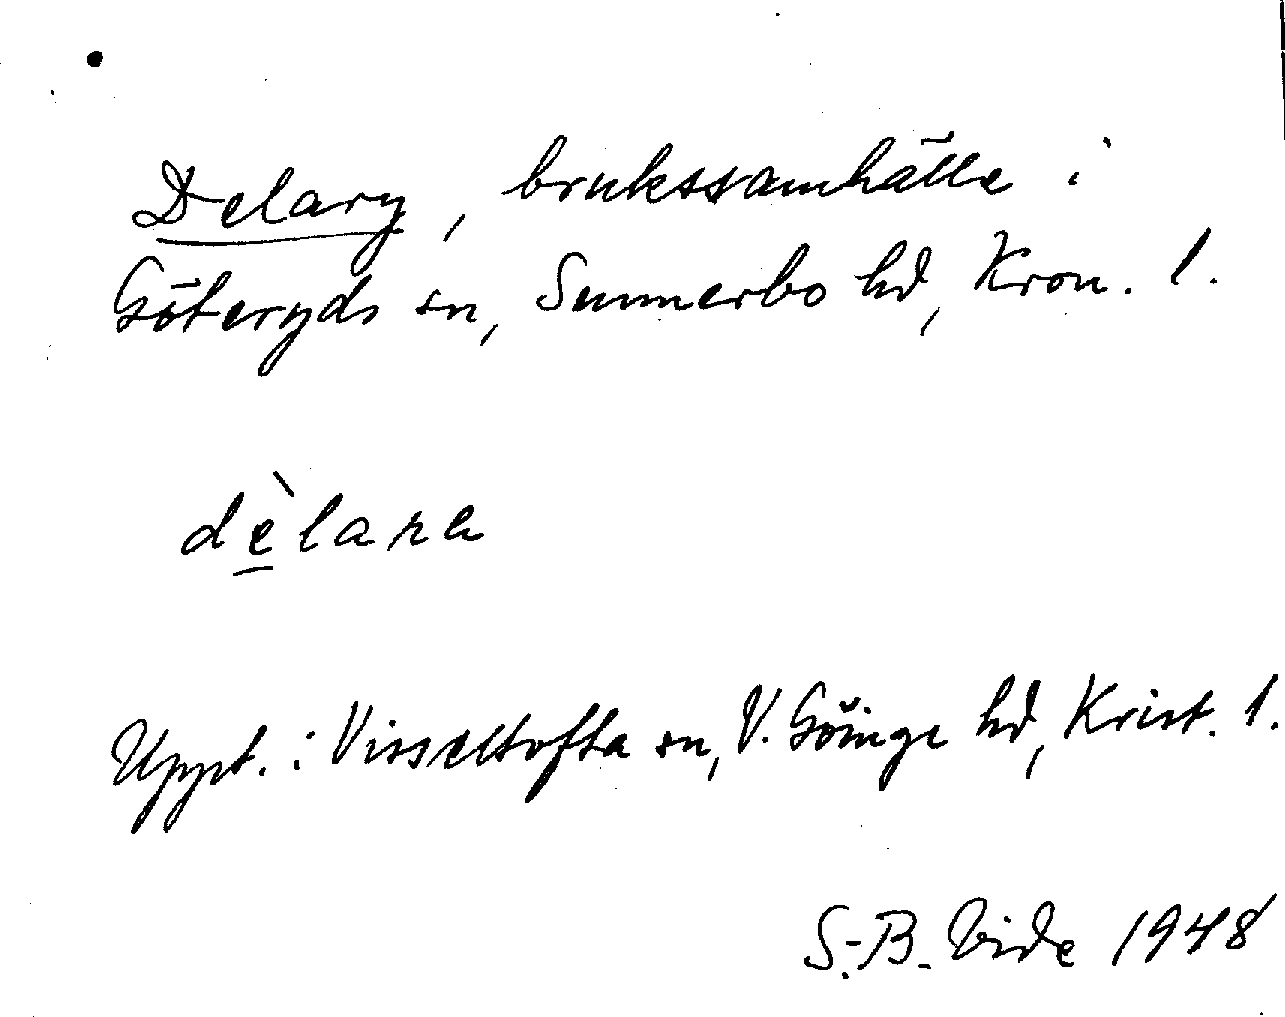 Delary, brukssamhälle i
Göteryds sn, Sunnerbo hd, Kron. l.
dèlara
Uppt. i Visseltofta sn, V. Göinge hd, Krist. l.
S.-B. Vide 1948